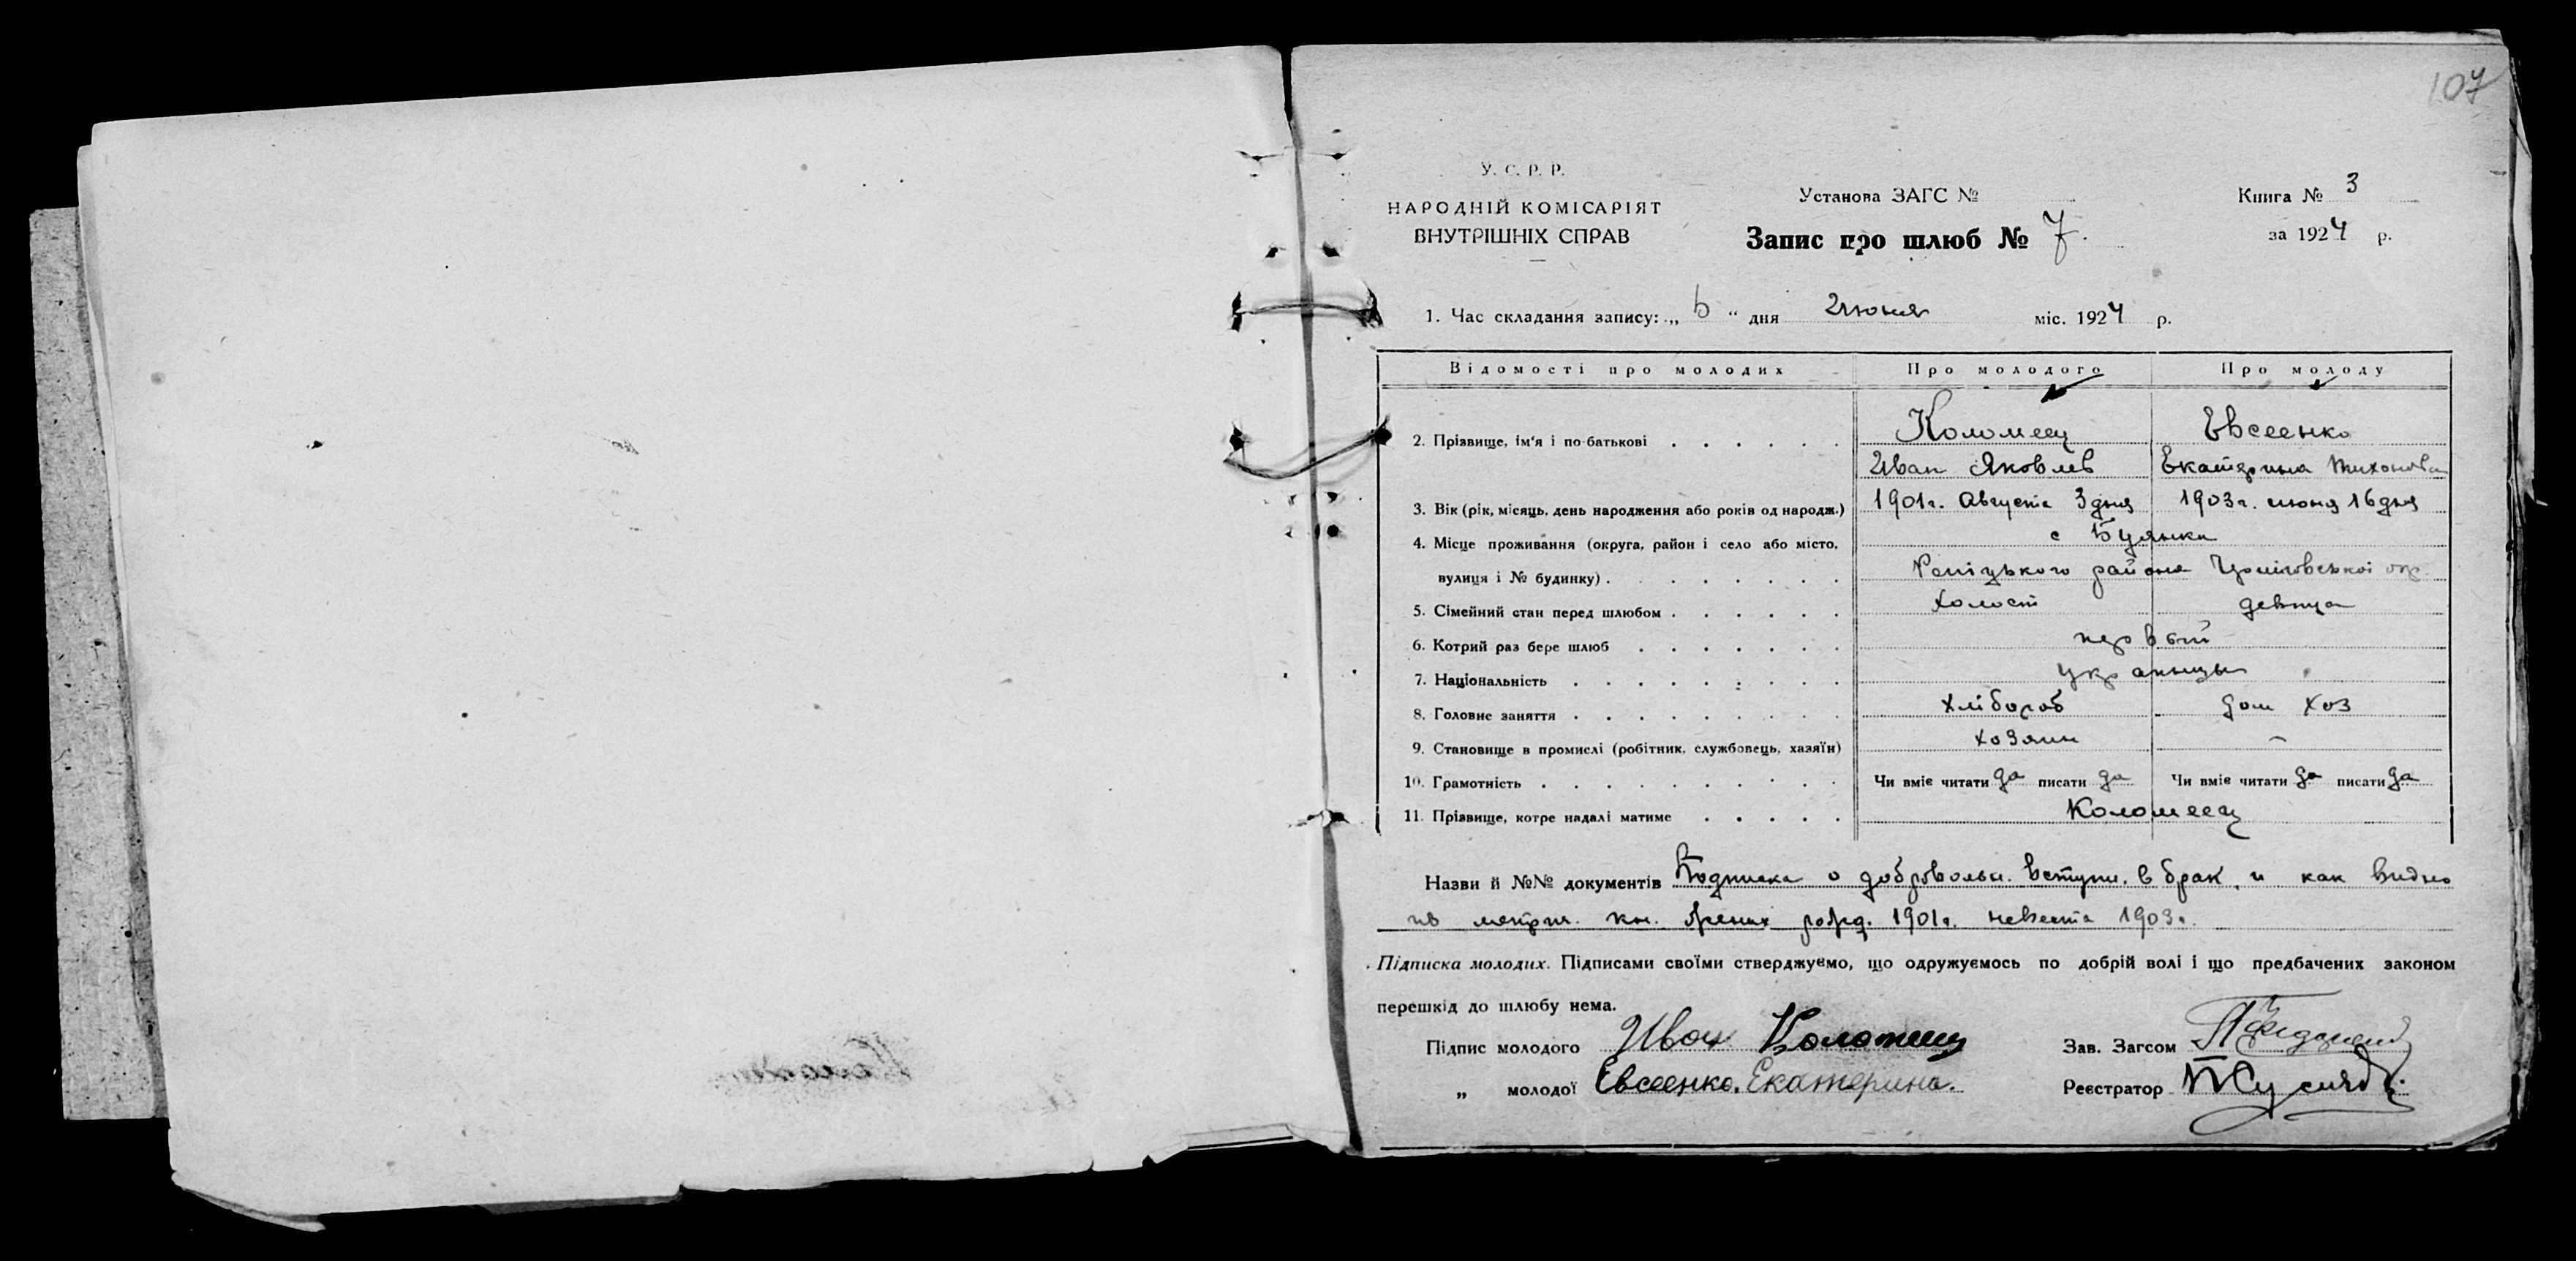 107
У. С. Р. Р.
НАРОДНІЙ КОМІСАРІЯТ
ВНУТРІШНІХ СПРАВ
Установа ЗАГС №
Запис про шлюб № 7.
Книга № 3
за 1924 р.
1. Час складання запису: „ “ дня Июня міс. 1924 р.
Відомості про молодих Про молодого Про молоду
2. Прізвище, ім‘я і по-батькові Коломеец Евсеенко
Иван Яковлев Екатерина Тихоновна
3. Вік (рік, місяць, день народження або років од народж.) 1901г. Августа 3 дня 1903г. июня 16 дня
4. Місце проживання (округа, район і село або місто, с Буянки
вулиця і № будинку) района Черніговської окр.
5. Сімейний стан перед шлюбом холост девица
6. Котрий раз бере шлюб первый
7. Національність украинцы
8. Головне заняття хлібороб дом хоз
9. Становище в промислі (робітник, службовець, хазяїн) хозяин –
10. Грамотність Чи вміє читати да писати да Чи вміє читати да писати да
11. Прізвище, котре надалі матиме Коломеец
Назви й №№ документів Подписка о добровольн. вступл. в брак, и как видно
из метрич. кн. жених рожд. 1901г. невеста 1903г.
Підписка молодих. Підписами своїми стверджуємо, що одружуємось по добрій волі і що предбачених законом
перешкід до шлюбу нема.
Підпис молодого Иван Коломеец
„ молодої Евсеенко. Екатерина.
Зав. Загсом
Реєстратор